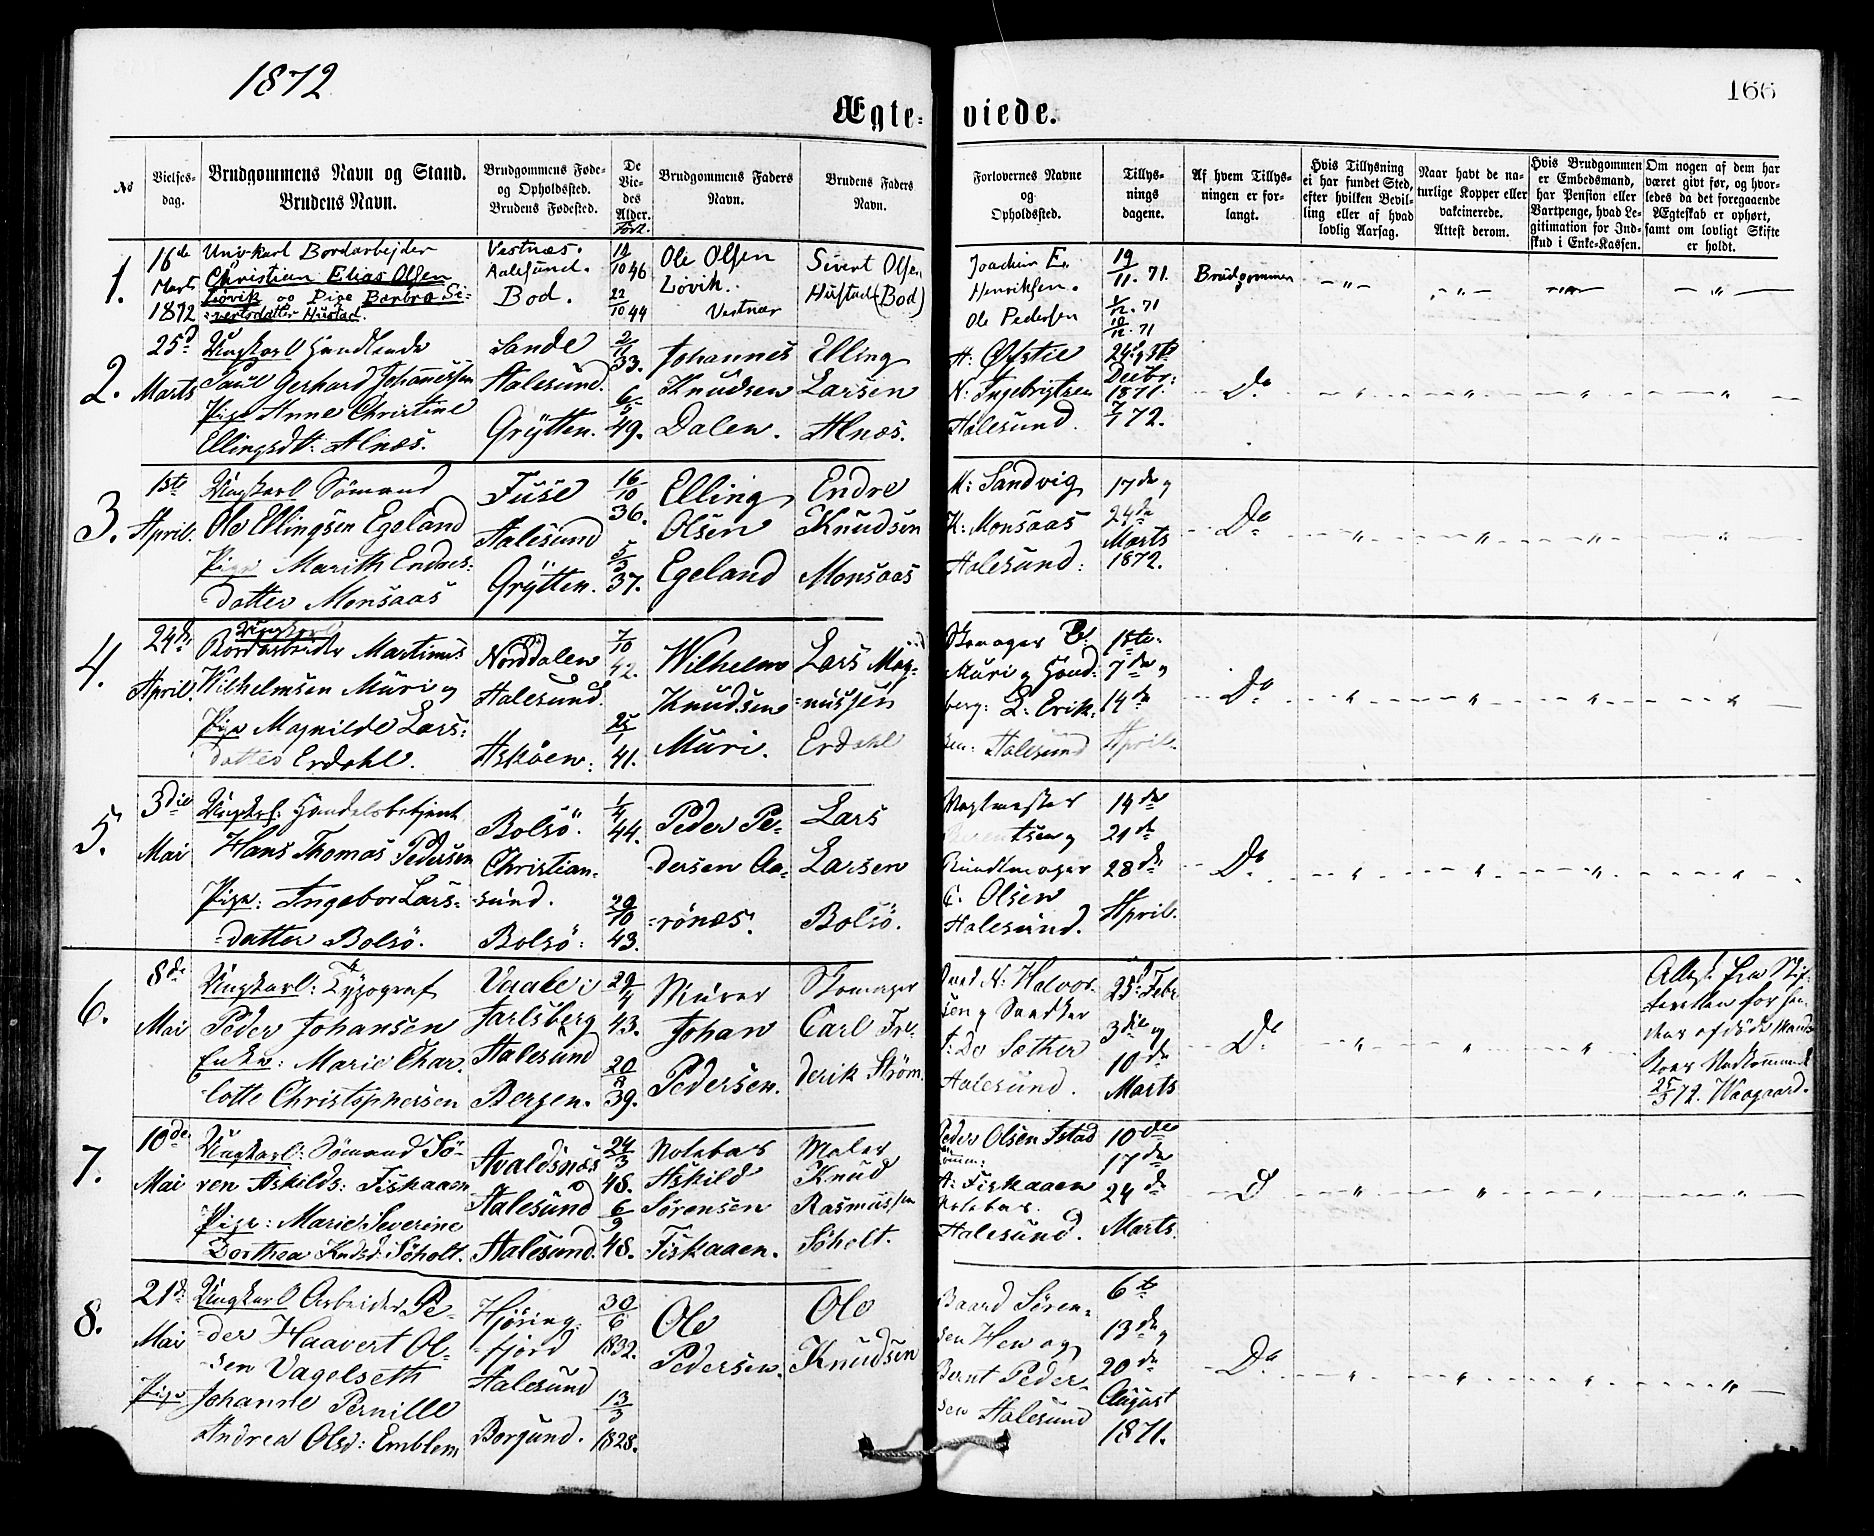 1872
166
Ægte- viede.
No
Vielses-
dag.
Brudgommens Navn og Stand.
Brudens Navn.
Brudgommens Føde-
og Opholdssted.
Brudens Fødested.
De
Vie-
des
Alder.
Født.
Brudgommens Faders
Navn.
Brudens Faders
Navn.
Forlovernes Navne
og
Opholdssted.
Tillys-
nings
dagene.
Af hvem Tillys-
ningen er for-
langt.
Hvis Tillysning
ei har fundet Sted,
efter hvilken Bevil-
ling eller af hvad
lovlig Aarsag.
Naar havt de na-
turlige Kopper eller
vakcinerede.
Attest derom.
Hvis Brudgommen
er Embedsmand,
har Pension eller
Vartpenge, hvad Le-
gitimation for Ind-
skud i Enke-Kassen.
Om nogen af dem har
været givt før, og hvor-
ledes da det foregaaende
Ægteskab er ophørt,
samt om lovligt Skifte
er holdt.
1.
16de
Marts
1872
Ungkarl Bordarbejder
Christian Elias Olsen
Løvik og Pige Barbra Si-
vertsdatter Hustad.
Vestnæs.
Aalesund.
Bod.
12/10 46
22/10 44
Ole Olsen
Løvik.
Vestnæs
Sivert Olsen
Hustad (Bod)
Joachim E.
Henriksen.
Ole Pedersen
19/11. 71.
1/12. 71
10/12. 71
Brudgommen
2.
25d
Marts
Ungkarl Handlende
Paul Gerhard Johannessen
Pige Anne Christine
Ellingsdtt: Alnæs.
Sande
Aalesund.
Grÿtten.
2/11
33.
6/5
49.
Johannes
Knudsen
Dalen.
Elling
Larsen
Alnæs.
H: Øfstie
N: Ingebrigtsen
Aalesund.
Decbr:
1871.
7/1 72.
Do
3.
1ste
April.
Ungkarl Sømand
Ole Ellingsen Egeland
Pige Marith Endres-
datter Monsaas
Fuse
Aalesund
Grÿtten.
16/10
36.
5/3
37.
Elling
Olsen
Egeland
Endre
Knudsen
Monsaas
M: Sandvig
K: Monsaas
Aalesund:
17de og
24de
Marts
1872.
Do
4.
24de
April.
Ungkarl
Bordarbeider Martinus
Wilhelmsen Muri og
Pige Magnilde Lars-
datter Erdahl.
Norddalen
Aalesund.
Askøen:
7/10
42.
25/1
41.
Wilhelm
Knudsen
Muri.
Lars Mag-
nussen
Erdahl
Skomager
Muri og Hand-
L: Erik-
sen: Aalesund
1ste
7de og
14de
April.
Do
5.
3die
Mai
Ungkarl: Handelsbetjent
Hans Thomas Pedersen
Pige: Ingebor Lars-
datter Bolsö.
Bolsö.
Christian-
sund.
Bolsö:
1/4
44.
29/10
43.
Peder Pe-
dersen Aa-
rönæs.
Lars
Larsen
Bolsö.
Vagtmester
Buntmager
C. Olsen
Aalesund.
14de
21de
28de
April.
Do
6.
8de
Mai
Ungkarl: Typograf
Peder Johansen
Enke: Marie Char-
lotte Christophersen
Vaale i
Jarlsberg
Aalesund
Bergen.
29/4
43.
20/8
39.
Murer
Johan
Pedersen.
Skomager
Carl Fre-
derik Strøm.
N: Halvor-
sen og Snedker
Sæther
Aalesund.
25d Febr
3die og
10de
Marts
Do
Attest fra Skif-
teretten for
afdøde Mands
25/3 72. Waagaard.
7.
10de
Mai
Ungkarl: Sømand Sö-
ren Askilds: Fiskaaen
Pige: Marie Severine
Dorthea Knudsd: Söholt.
Avaldsnæs
Aalesund
Aalesund.
24/3
48.
6/9
48.
Notebas
Askild
Sörensen
Fiskaaen.
Maler
Knud
Rasmussen
Söholt.
Peder Olsen Istad
A: Fiskaaen
Notebas.
Aalesund.
10de
17de
24de
Marts.
D
8.
21de
Mai
Pige
Ungkarl Arbeider Pe-
der Haavert Ol-
sen Vagelseth
Johanne Pernille
Andrea Olsd: Emblem
Hjöring-
fjord
Aalesund
Borgund.
30/6
1832.
13/3
1828.
Ole
Pedersen.
Ole
Knudsen
Baard Sören-
sen Hen og
Bernt Peder-
sen Aalesund
6te
13de og
20de
August
1871.
Do